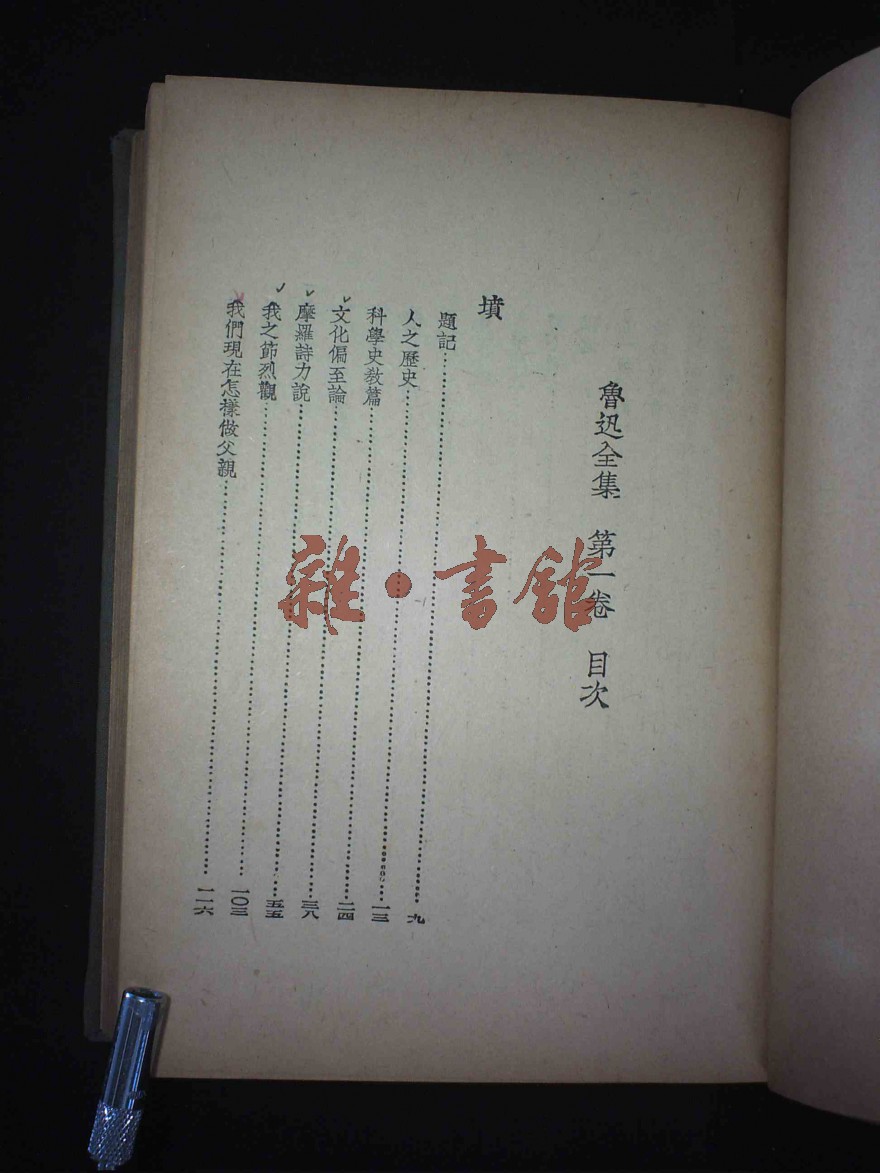 魯迅全集 第一卷 目次
墳
題記……九
人之歷史……一三
科學史教篇……二四
文化偏至論……三八
摩羅詩力說……五五
我之節烈觀……一〇三
我們現在怎樣做父親……一一六
雜·書館